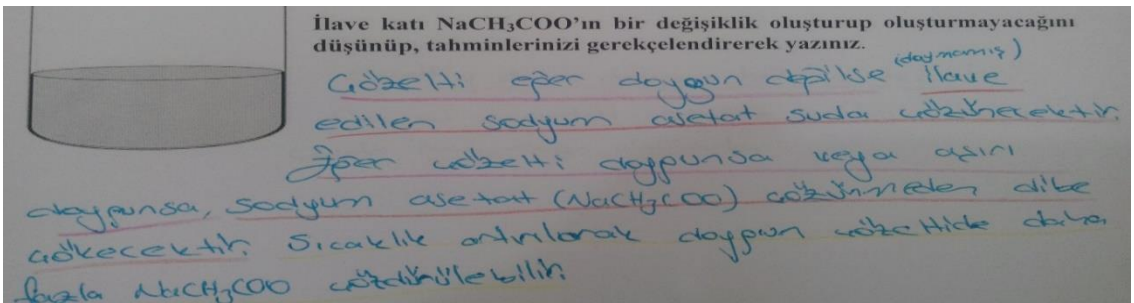 İlave katı NaCH₃COO'ın bir değişiklik oluşturup oluşturmayacağını
düşünüp, tahminlerinizi gerekçelendirerek yazınız.
(doymamış)
Çözelti eğer doygun değilse ilave
edilen sodyum asetat suda çözünecektir.
Eğer çözelti doygunsa veya aşırı
doygunsa, sodyum asetat (NaCH₃COO) çözünmeden dibe
çökecektir. Sıcaklık artırılarak doygun çözeltide daha
fazla NaCH₃COO çözdürülebilir.